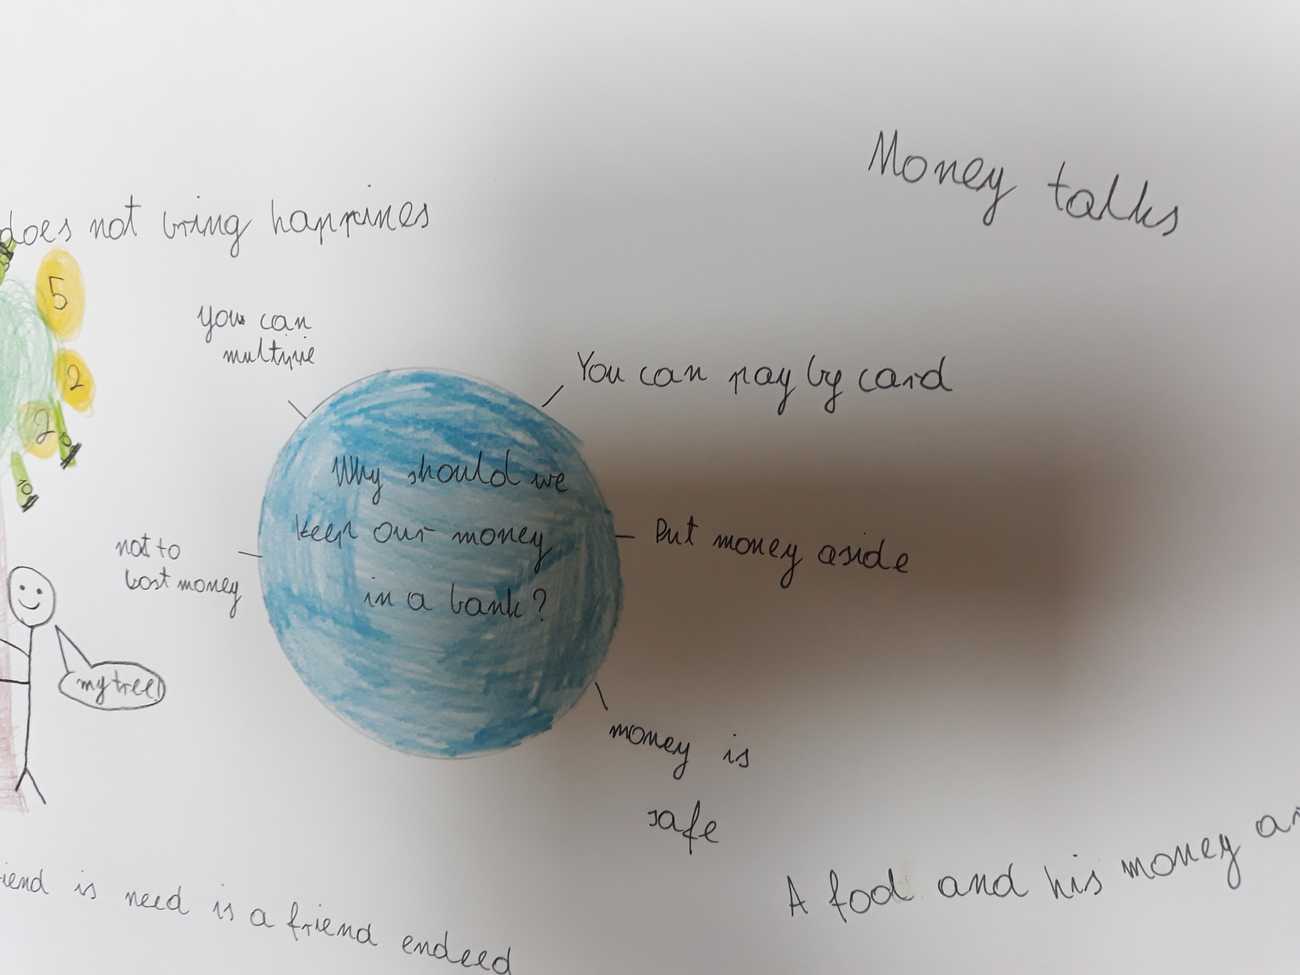 Money talks
does not bring happines
5
2
2
10
you can
multiplie
You can pay by card
Why should we
keep our money
in a bank?
Put money aside
not to
lost money
my tree!
money is
safe
A fool and his money ar
riend is need is a friend endeed